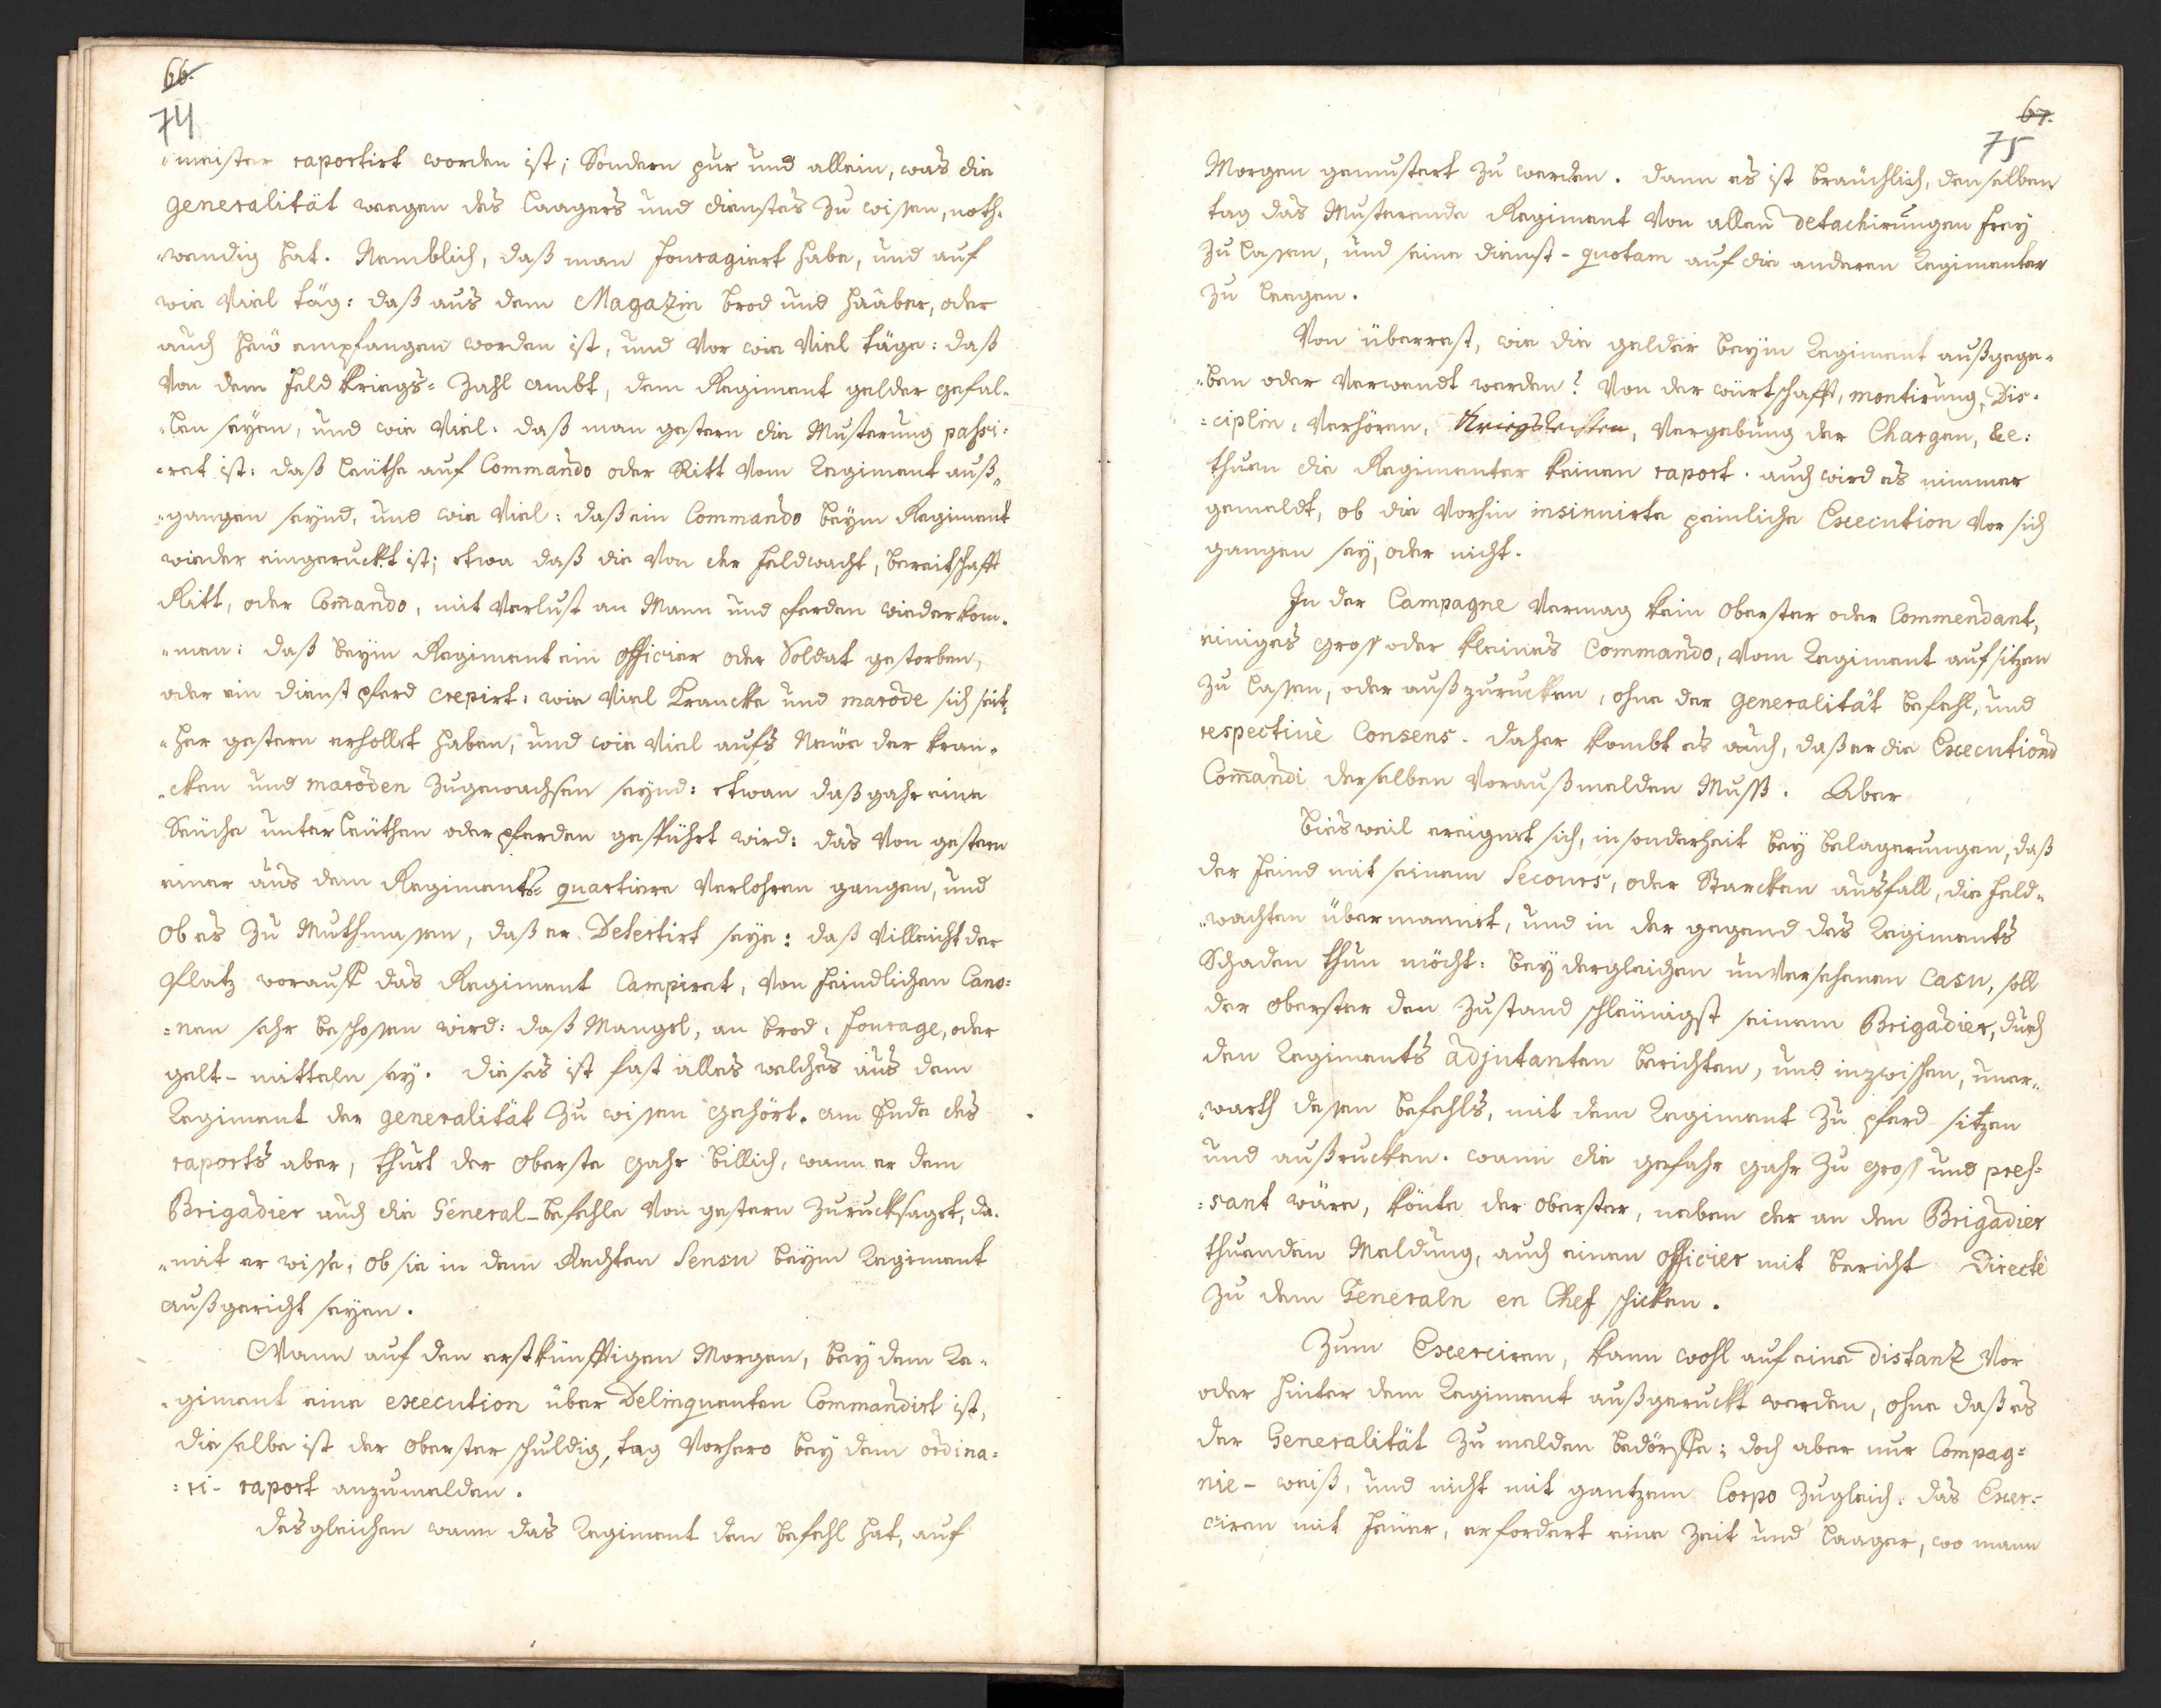 66.
74
"meister raportirt worden ist; Sondern pur und allein, was die
Generalität wegen des Laagers und dienstes zu wissen, noth-
"wendig hat. Nemblich, daß man fouragiert habe, und auf
wie Viel täg: daß aus dem Magazin brod und haaber, oder
auch heü empfangen worden ist, und Vor wie Viel täge: daß
Von dem feld kriegs-Zahl ambt, dem Regiment gelder gefal-
"len seyen, und wie Viel: daß man gestern die Musterung passi-
"ret ist: daß leüthe auf Commando oder Ritt vom Regiment auß-
"gangen seynd, und wie Viel: daß ein Commando beym Regiment
wieder eingeruckt ist; etwa daß die Von der feldwacht, bereitschafft
Ritt, oder Com̄ando, mit Verlust an Mann und pferden wiederkom-
"men: daß beym Regiment ein officier oder Soldat gestorben,
oder ein dienst pferd crepirt: wie Viel Krancke und marode sich seit-
"her gestern erhollet haben, und wie Viel aufs Neüe der kran-
"cken und maroden zugewachsen seynd: etwan daß gahr eine
Seüche unter leüthen oder pferden gespührt wird: das Von gestern
einer aus dem Regiments-quartiere Verlohren gangen, und
ob es zu Muthmassen, daß er Desertirt seye: daß Villeicht der
Platz worauff das Regiment Campiret, Von feindlichen Cano-
=nen sehr beschossen wird: daß Mangel, an brod, fourage, oder
gelt-mitteln sey. dieses ist fast alles welches aus dem
Regiment der generalität zu wissen gehört. am Ende des
raports aber, thuet der Oberste gahr billich, wann er dem
Brigadier auch die General-befehle Von gestern zurucksaget, da-
"mit er wisse, ob sie in dem Rechten Sensu beym Regiment
außgericht seyen.
Wann auf den erstkünfftigen Morgen, bey dem Re-
"giment eine execution über Delinquenten Commandirt ist,
dieselbe ist der Oberster schuldig, tag Vorhero bey dem ordina-
=ri-raport anzumelden.
desgleichen wann das Regiment den befehl hat, auf
67.
75
Morgen gemustert zu werden. dann es ist bräuchlich, denselben
tag das Musterende Regiment Von allen detachirungen frey
zu lassen, und seine dienst-quotam auf die anderen Regimenter
zu legen.
Von überrest, wie die gelder beym Regiment außgege-
"ben oder Verwendt werden? Von der würtschafft, montirung, Dis-
=ciplin, Verhören, Kriegsrechten, Vergebung der Chargen, &c:
thuen die Regimenter keinen raport. auch wird es nimmer
gemeldt, ob die Vorhin insinuirte peinliche Execution Vor sich
gangen sey, oder nicht.
In der Campagne Vermag kein Oberster oder Commendant,
einiges gross oder kleines Commando, Vom Regiment aufsitzen
zu lassen, oder außzurucken, ohne der generalität befehl, und
respectivè Consens. daher kombt es auch, daß er die Executions
Com̄andi derselben Vorausmelden Muß. Aber
bisweil ereignet sich, insonderheit bey belagerungen, daß
der feind mit seinem Secours, oder Starcken ausfall, die feld-
"wachten übermannet, und in der gegend des Regiments
Schaden thun möcht: bey dergleichen unversehenen Casu, soll
der Oberster den Zustand schleünigst seinem Brigadier, durch
den Regiments adjutanten berichten, und inzwischen, uner-
"warth dessen befehls, mit dem Regiment zu pferd sitzen
und außrucken. wann die gefahr gahr zu gross und pres-
=sant wäre, könte der Oberster, neben der an dem Brigadier
thuenden Meldung, auch einen officier mit bericht Directè
zu dem Generaln en Chef schicken.
Zum Exerciren, kann wohl auf eine distanz Vor
oder hinter dem Regiment außgeruckt werden, ohne daß es
der Generalität zu melden bedörffe; doch aber nur Compag-
nie-weiß, und nicht mit gantzem Corpo zugleich. das Exer-
ciren mit feüer, erfordert eine Zeit und Laager, wo mann